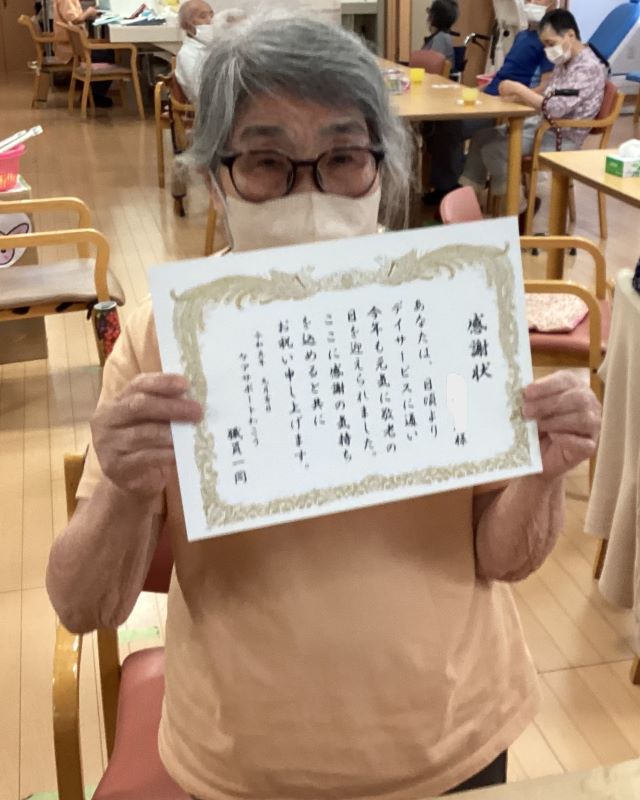 感謝状
様
あなたは、日頃より
デイサービスに通い
今年も元気に敬老の
日を迎えられました。
ここに感謝の気持ち
を込めると共に
お祝い申し上げます。
ケアサポート
職員一同